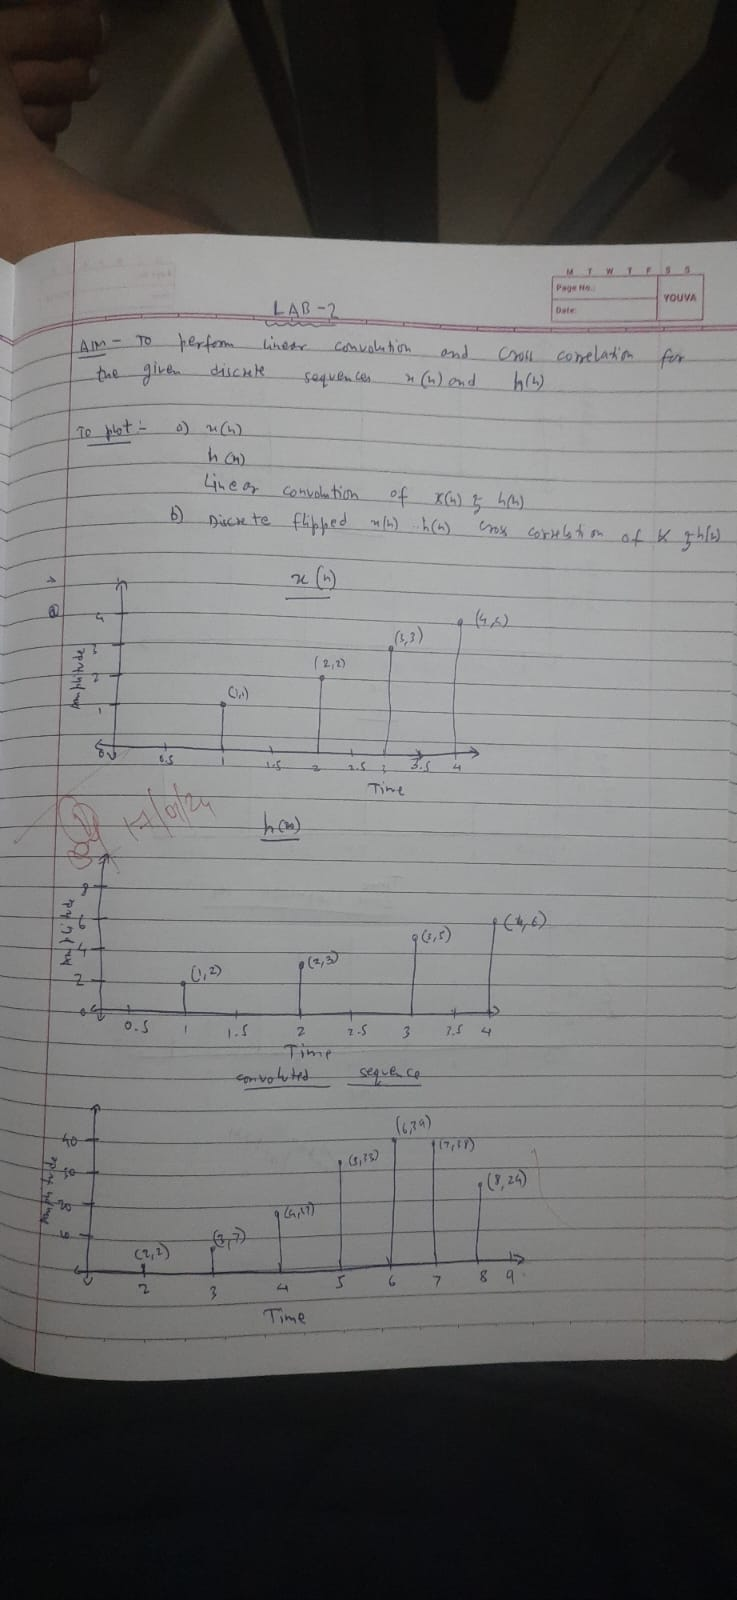 M T W T F S S
Page No.:
Date:
YOUVA
LAB-2
AIM - To perform linear convolution and cross correlation for
the given discrete sequences x(n) and h(n)
To plot :- a) x(n)
h(n)
Linear convolution of x(n) & h(n)
b) Discrete flipped x(n) h(n) cross correlation of x & h(n)
a)
x(n)
Amplitude
4
3
2
1
0
(1,1)
(2,2)
(3,3)
(4,4)
0.5 1 1.5 2 2.5 3 3.5 4
Time
17/01/24
h(n)
Amplitude
8
6
4
2
0
(1,2)
(2,3)
(3,5)
(4,6)
0.5 1 1.5 2 2.5 3 3.5 4
Time
convoluted sequence
Amplitude
40
30
(2,2)
(3,7)
(4,17)
(6,39)
(7,38)
(8,24)
2 3 4 5 6 7 8 9
Time